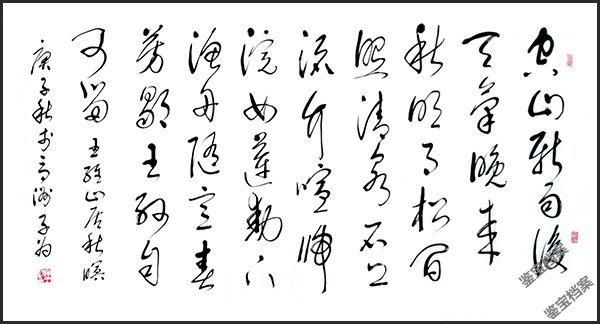 空山新雨後
天氣晚来
秋明月松間
照清泉石上
流竹喧歸
浣女蓮動下
渔舟随意春
芳歇王孙自
可留 王維山居秋暝
庚子秋於
鉴宝档案
鉴宝档案